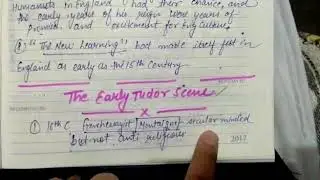 Humanists in England had their chance, and
the early years of his reign were years of
promise and excitement for Eng Culture.
② "The New Learning" had made itself felt in
England as early as the 15th Century.
The Early Tudor Scene
x
① 16th C secular minded
but not anti religious
2017